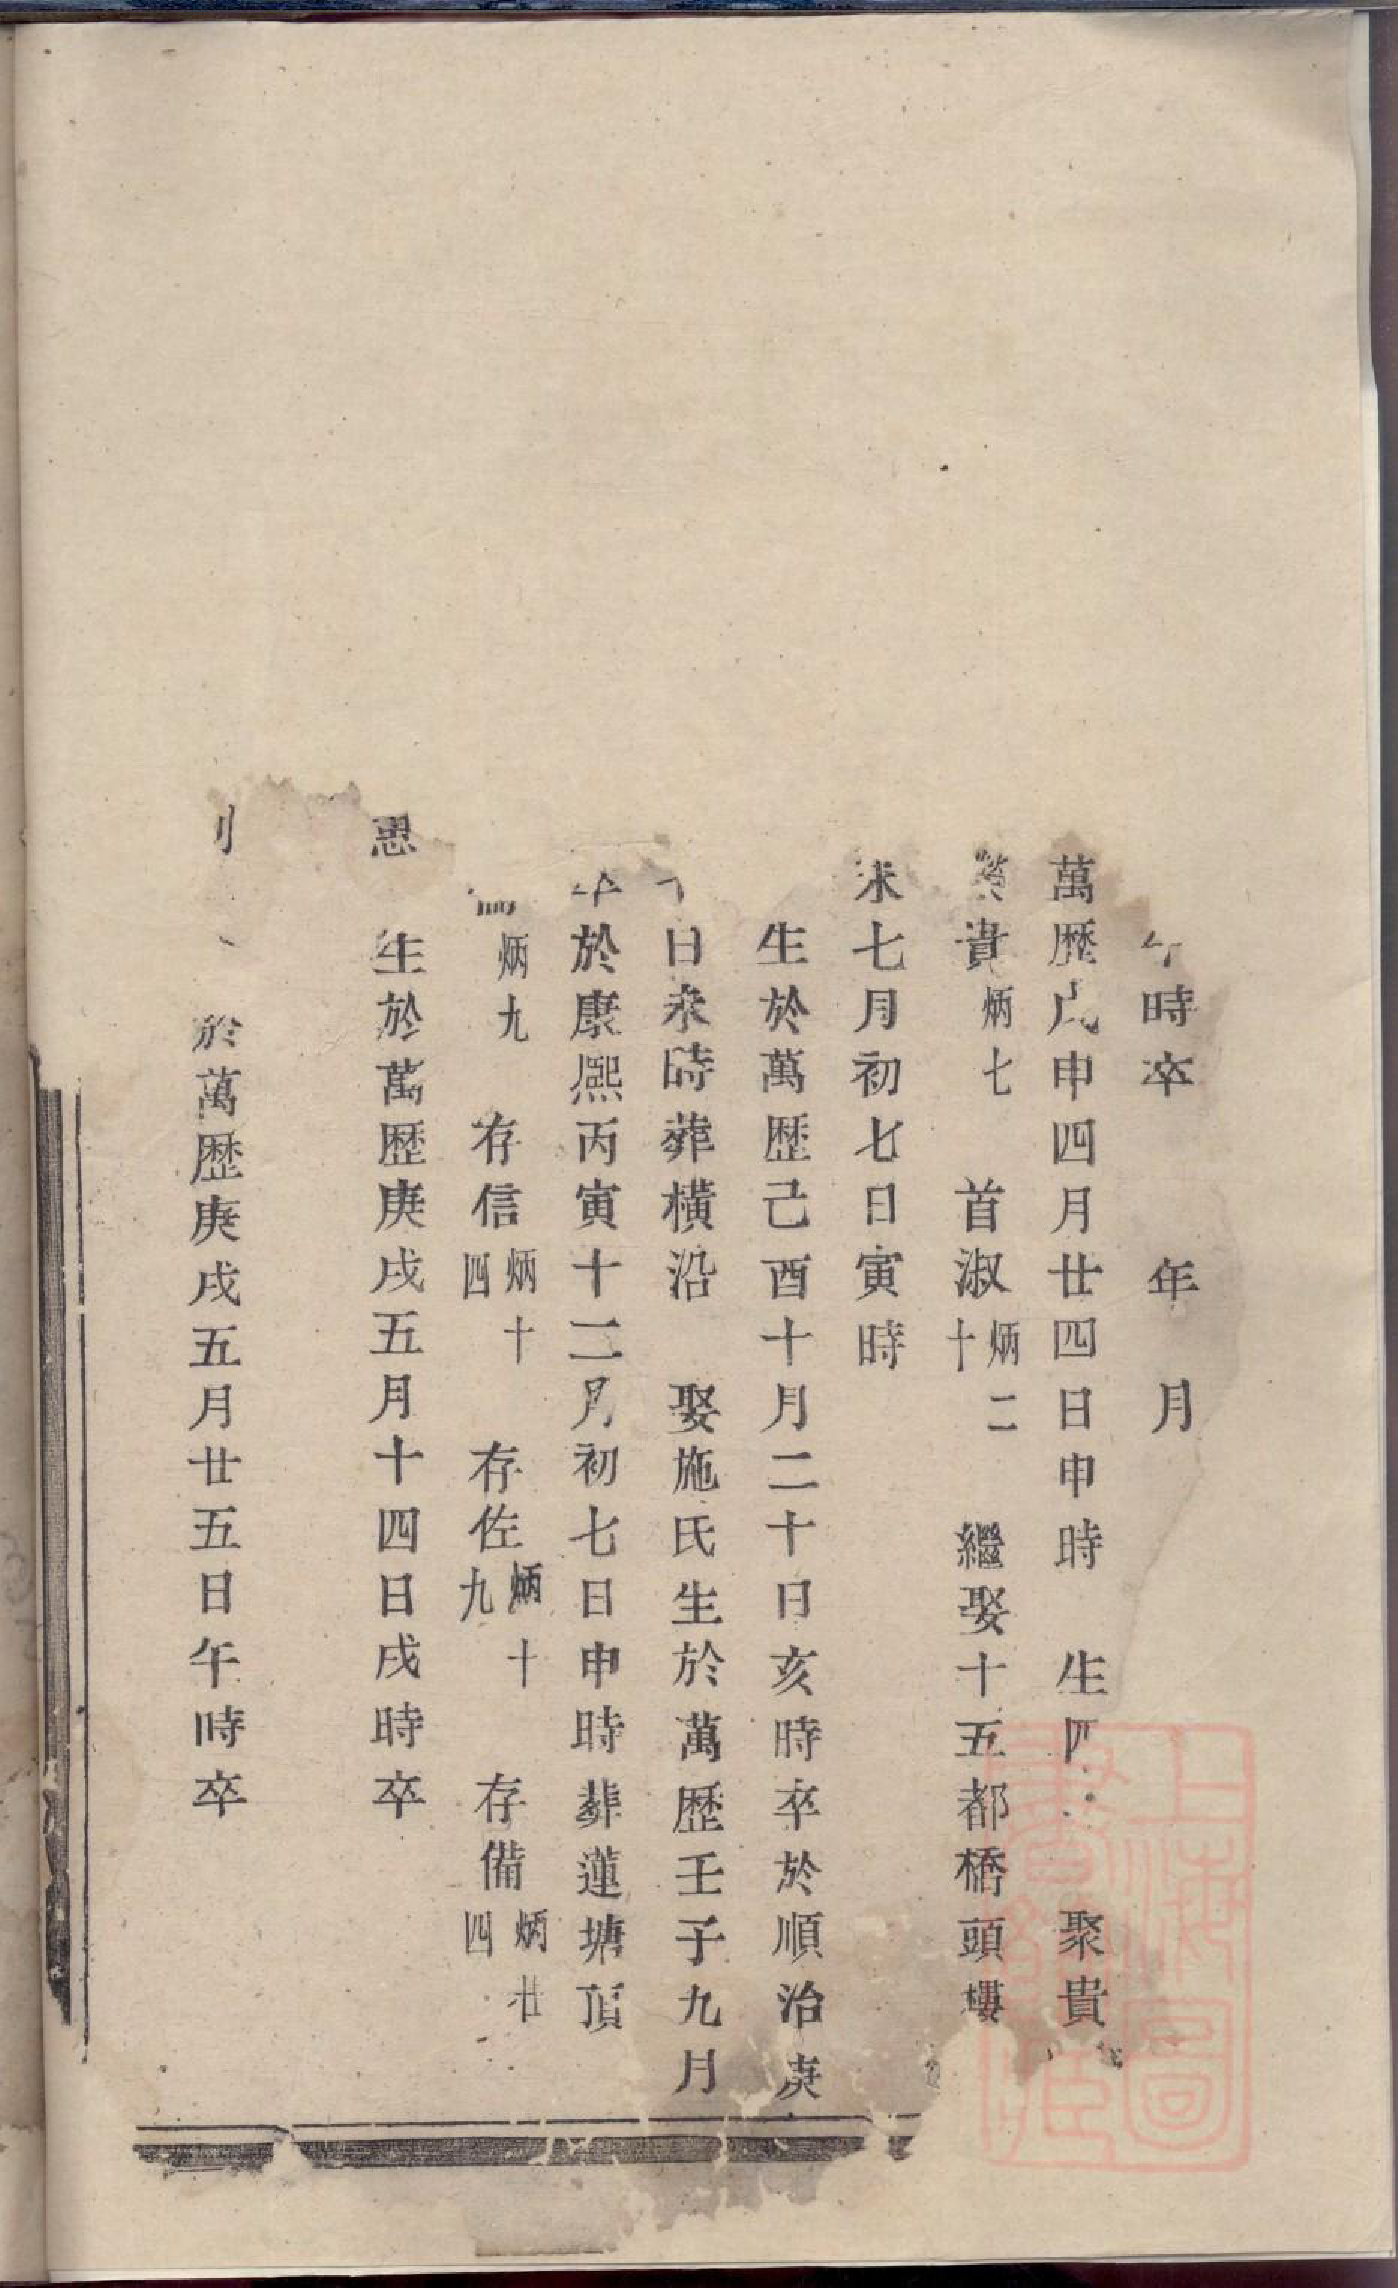 時卒　　年　月
萬歷戊申四月廿四日申時　生四　聚貴
貴炳七　首淑炳二十　繼娶十五都橋頭樓
未七月初七日寅時
生於萬歷己酉十月二十日亥時卒於順治庚
日未時葬橫沿　娶施氏生於萬歷壬子九月
卒於康熙丙寅十二月初七日申時葬蓮塘頂
炳九　存信炳十四　存佐炳十九　存備炳廿四
思　生於萬歷庚戌五月十四日戌時卒
於萬歷庚戌五月廿五日午時卒
上海圖書館藏